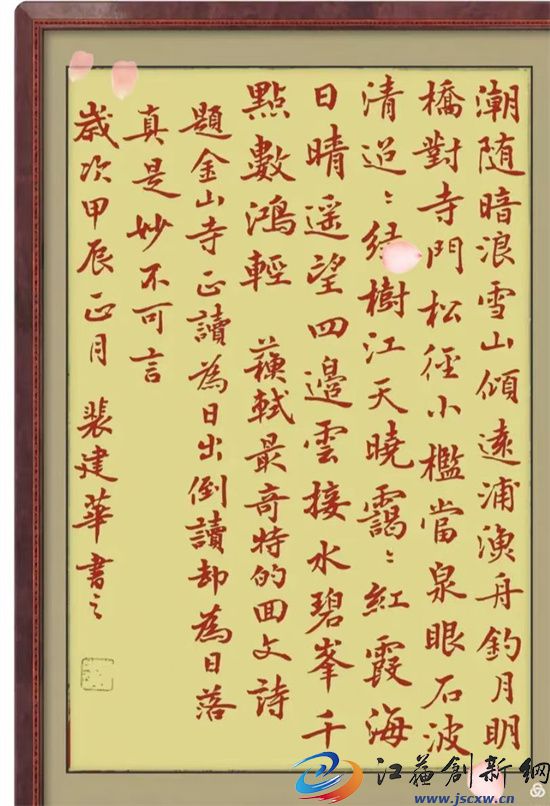 潮随暗浪雪山傾遠浦漁舟釣月明
橋對寺門松徑小檻當泉眼石波
清迢〻緑樹江天曉靄〻紅霞海
日晴遥望四邊雲接水碧峯千
點數鴻輕 蘓軾最奇特的回文詩
題金山寺正讀為日出倒讀却為日落
真是妙不可言
歲次甲辰正月 裴建華書之
江苏創新網
www.jscxw.cn